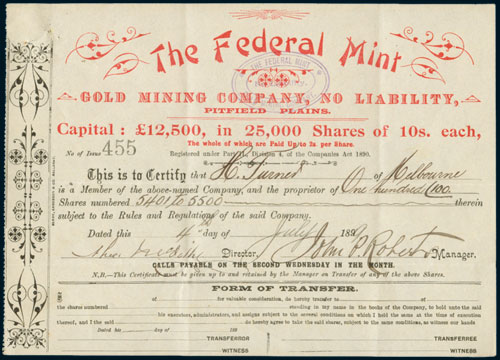 The Federal Mint
THE FEDERAL MINT
GOLD MINING COMPANY, NO LIABILITY,
PITFIELD PLAINS.
Capital: £12,500, in 25,000 Shares of 10s. each,
The whole of which are Paid Up to 2s. per Share.
No of Issue 455 Registered under Part II., Division 4, of the Companies Act 1890.
This is to Certify that H. Turner of Melbourne
is a Member of the above-named Company, and the proprietor of One hundred (100)
Shares numbered 5401 to 5500 therein
subject to the Rules and Regulations of the said Company.
Dated this 4th day of July 189
Director, John P. Roberts Manager.
CALLS PAYABLE ON THE SECOND WEDNESDAY IN THE MONTH.
N.B.—This Certificate must be given up to and retained by the Manager on Transfer of any of the above Shares.
FORM OF TRANSFER.
for valuable consideration, do hereby transfer to
the shares numbered standing in my name in the books of the Company, to hold unto the said
his executors, administrators, and assigns subject to the several conditions on which I held the same at the time of execution
thereof, and I the said do hereby agree to take the said shares, subject to the same conditions, as witness our hands
Dated his day of 190
TRANSFEROR TRANSFEREE
WITNESS WITNESS